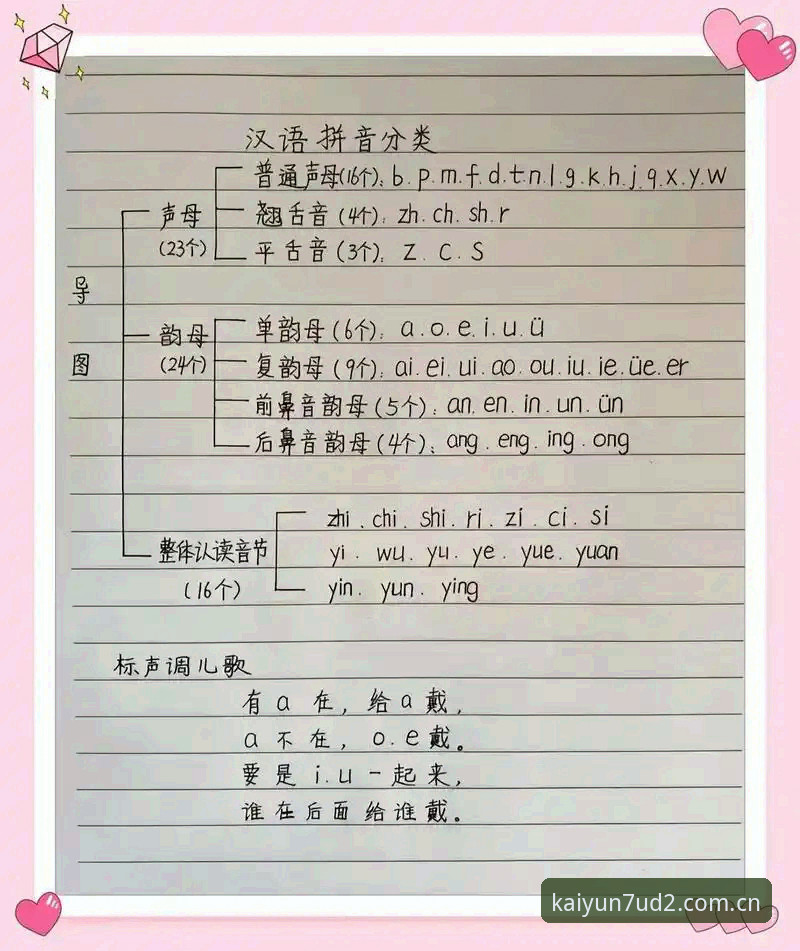 汉语拼音分类
普通声母(16个): b.p.m.f.d.t.n.l.g.k.h.j.q.x.y.w
声母 翘舌音(4个): zh.ch.sh.r
(23个) 平舌音(3个): z.c.s
导
韵母 单韵母(6个): a.o.e.i.u.ü
图 (24个) 复韵母(9个): ai.ei.ui.ao.ou.iu.ie.üe.er
前鼻音韵母(5个): an.en.in.un.ün
后鼻音韵母(4个): ang.eng.ing.ong
zhi.chi.shi.ri.zi.ci.si
整体认读音节 yi.wu.yu.ye.yue.yuan
(16个) yin.yun.ying
标声调儿歌
有a在,给a戴,
a不在,o.e戴。
要是i.u一起来,
谁在后面给谁戴。
kaiyun7ud2.com.cn